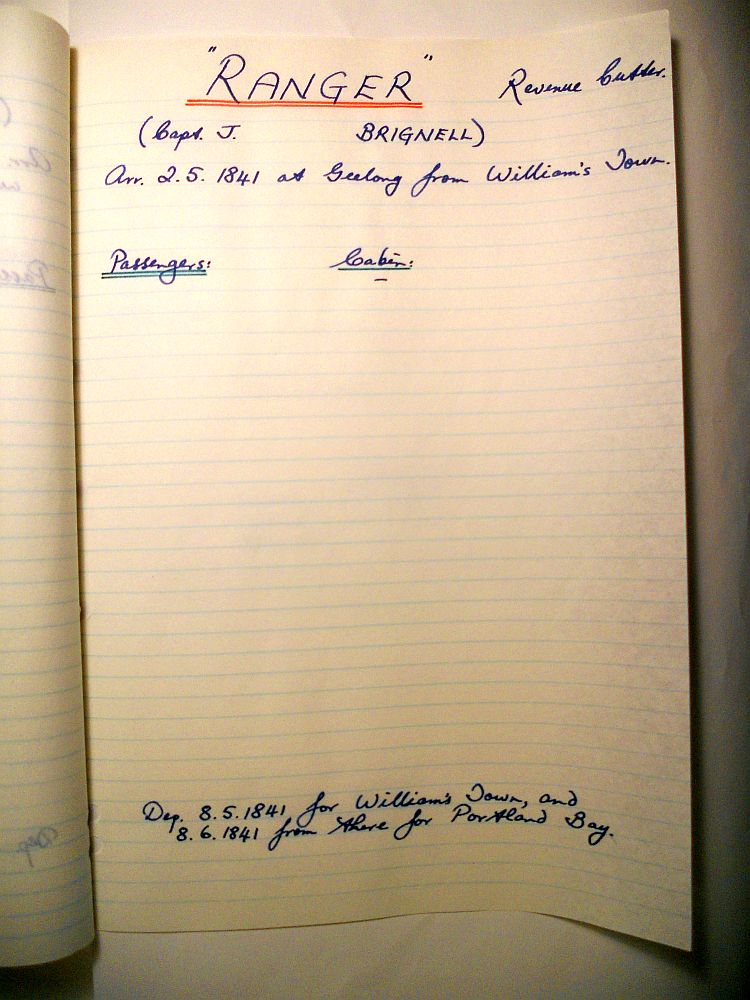 "RANGER" Revenue Cutter.
(Capt. J. BRIGNELL)
Arr. 2.5.1841 at Geelong from William's Town.
Passengers: Cabin:
–
Dep. 8.5.1841 for William's Town, and
8.6.1841 from there for Portland Bay.